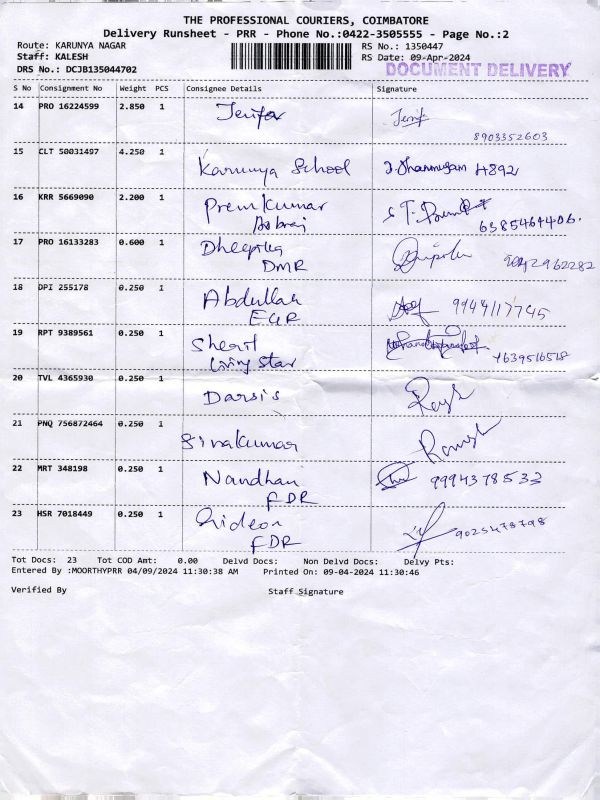 THE PROFESSIONAL COURIERS, COIMBATORE
Delivery Runsheet - PRR - Phone No.:0422-3505555 - Page No.:2
Route: KARUNYA NAGAR RS No.: 1350447
Staff: KALESH RS Date: 09-Apr-2024
DRS No.: DCJB135044702 DOCUMENT DELIVERY
S No Consignment No Weight PCS Consignee Details Signature
14 PRO 16224599 2.850 1 Jenifa
8903352603
15 CLT 50031497 4.250 1
Karunya School J. Shanmugam 4892
16 KRR 5669090 2.200 1 Premkumar
6385464406.
17 PRO 16133283 0.600 1 Dheepika
DMR 9042962282
18 DPI 255178 0.250 1 Abdullah
EGR 9944117745
19 RPT 9389561 0.250 1 Sheril
living star 7639516518
20 TVL 4365930 0.250 1 Darsis
21 PNQ 756872464 0.250 1
Sivakumar Ramesh
22 MRT 348198 0.250 1 Nandhan 9994378533
FDR
23 HSR 7018449 0.250 1 Gideon 9025478798
FDR
Tot Docs: 23 Tot COD Amt: 0.00 Delvd Docs: Non Delvd Docs: Delvy Pts:
Entered By :MOORTHYPRR 04/09/2024 11:30:38 AM Printed On: 09-04-2024 11:30:46
Verified By Staff Signature